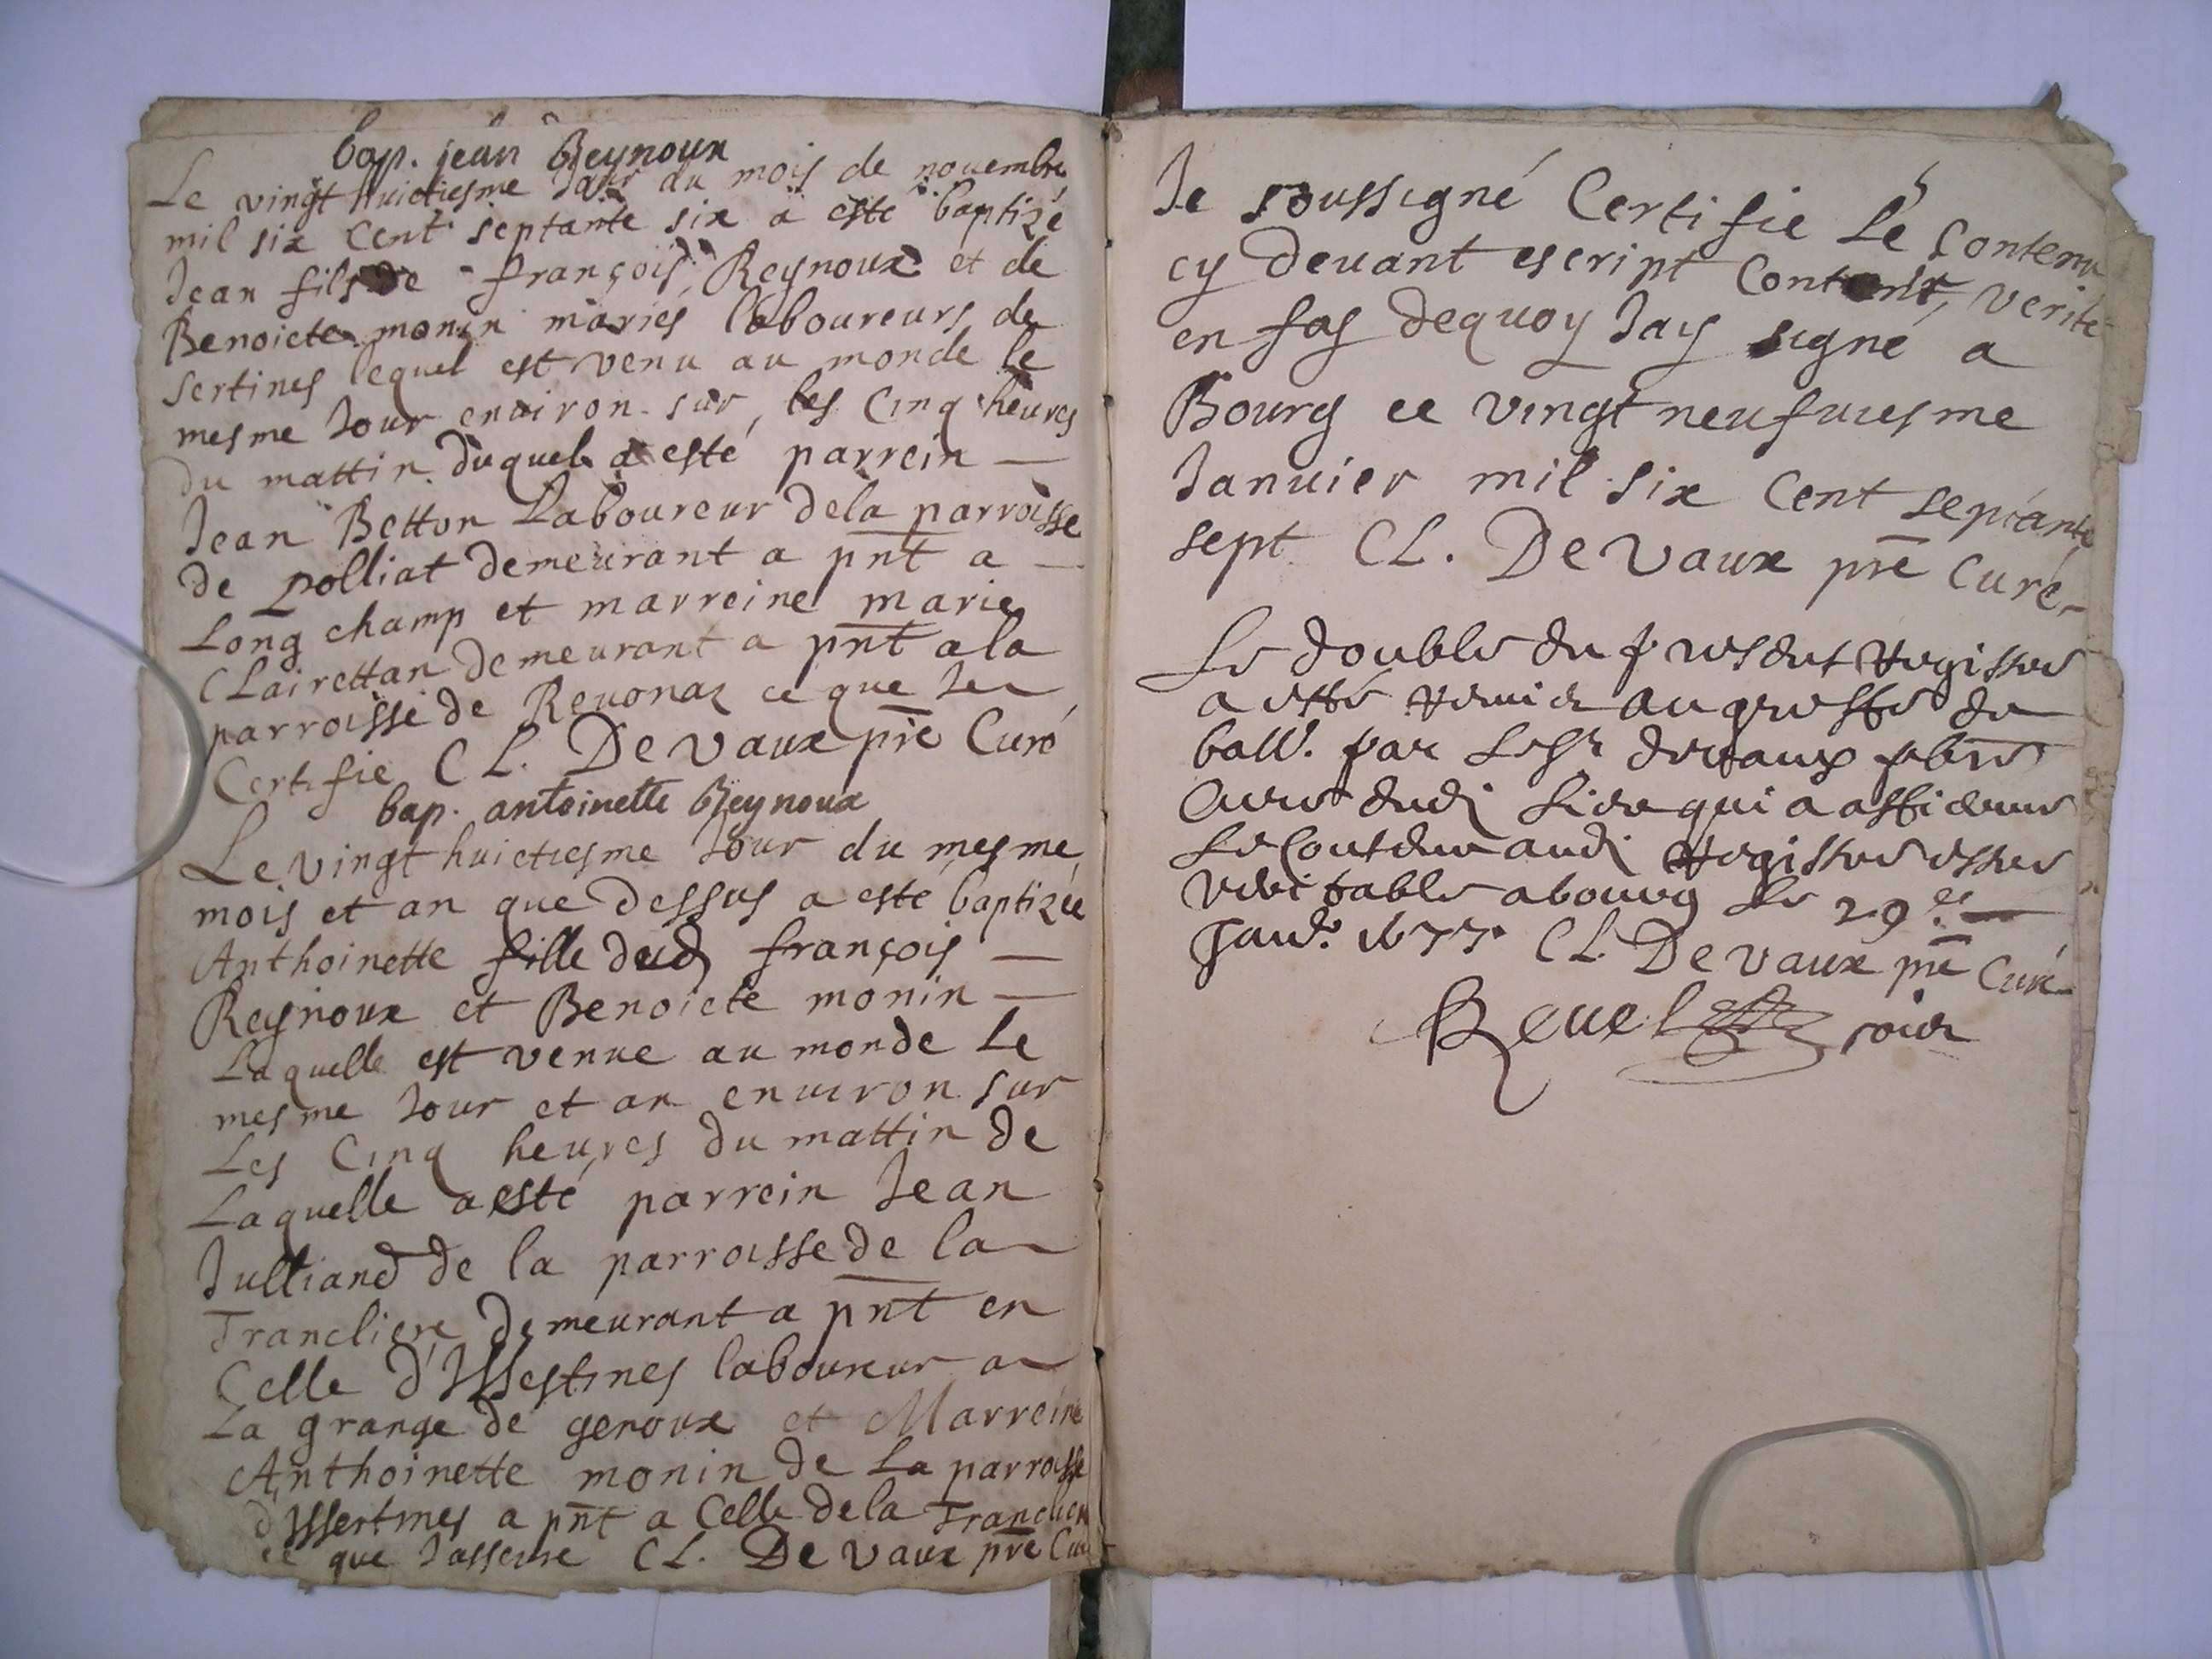 bap. jean Reynoux
Le vingt huictiesme Jour du mois de nouembre
mil six Cent septante six a esté baptizé
Jean fils de françois Reynoux et de
Benoicte monin mariés laboureurs de
Sertines lequel est venu au monde le
mesme Jour enuiron sur les Cinq heures
du mattin duquel a esté parrein —
Jean Betton Laboureur dela parroisse
de polliat demeurant a pnt a —
Long champ et marreine marie
Clairettan demeurant a pnt a la
parroisse de Reuonaz ce que Je
Certifie CL. De Vaux pre Curé
bap. antoinette Reynoux
Le vingt huictiesme Jour du mesme
mois et an que dessus a esté baptizée
Anthoinette fille dud françois —
Reynoux et Benoicte monin —
Laquelle est venue au monde Le
mesme Jour et an enuiron sur
Les Cinq heures du mattin de
Laquelle a esté parrein Jean
Julliand de la parroisse de la
Trancliere demeurant a pnt en
Celle d'Issestines laboureur a
La grange de genoux et Marreine
Anthoinette monin de La parroisse
d'Issertines a pnt a Celle de la Trancliere
ce que Jasseure CL. De Vaux pre Curé
Je soussigné Certifie Le Contenu
cy deuant escript Contenir verité
en foy dequoy Jay signé a
Bourg ce vingt neufuiesme
Januier mil six Cent septante
sept CL. De Vaux pre Curé
Le double du presdut Registre
a esté remis au greffe du
ball. par Le Sr devaux pbre
Curé dud lieu qui a affirmé
Le Contenu aud Registre estre
veritable a bourg Le 29e —
Janv. 1677. CL. De Vaux pre Curé
Reuel